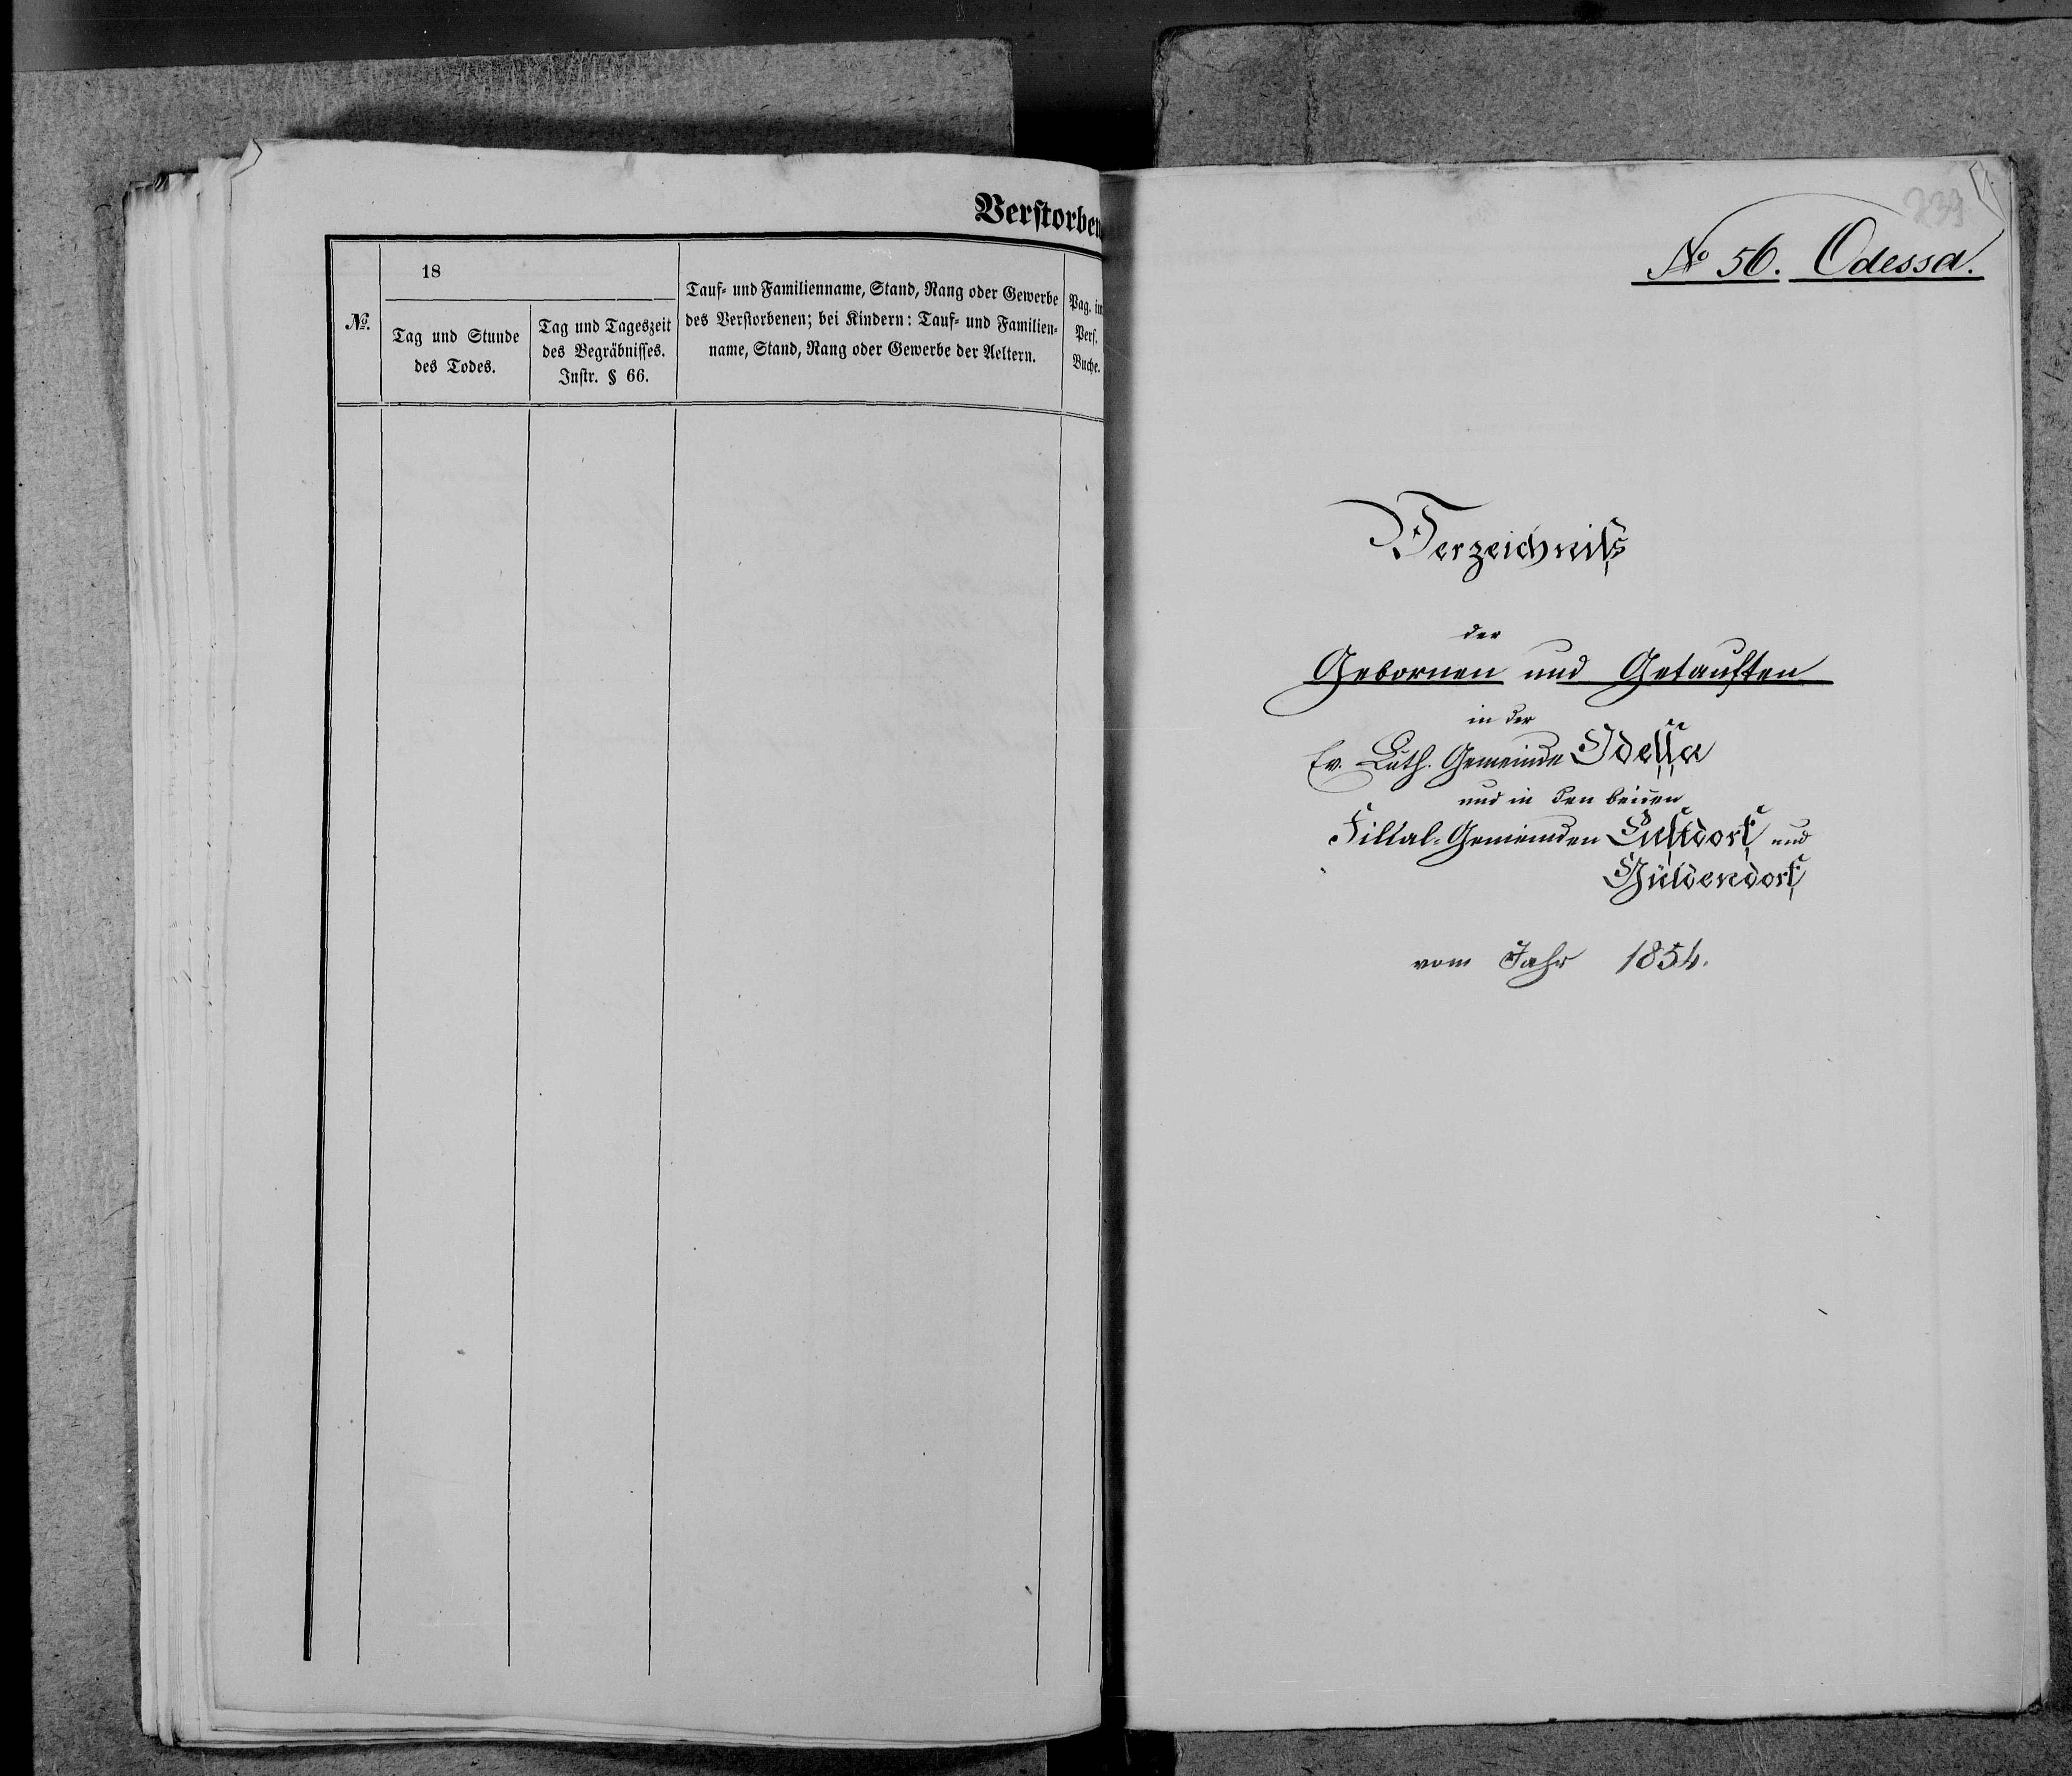 Verstorben
№.
18
Tag und Stunde
des Todes.
Tag und Tageszeit
des Begräbnisses.
Instr. § 66.
Tauf- und Familienname, Stand, Rang oder Gewerbe
des Verstorbenen; bei Kindern: Tauf- und Familien-
name, Stand, Rang oder Gewerbe der Aeltern.
Pag. im
Pers.
Buche.
239
№ 56. Odessa.
Verzeichniß
der
Gebornen und Getauften
in der
Ev. Luth. Gemeinde Odessa
und in den beiden
Filial-Gemeinden Lustdorf und
Güldendorf
vom Jahr 1854.